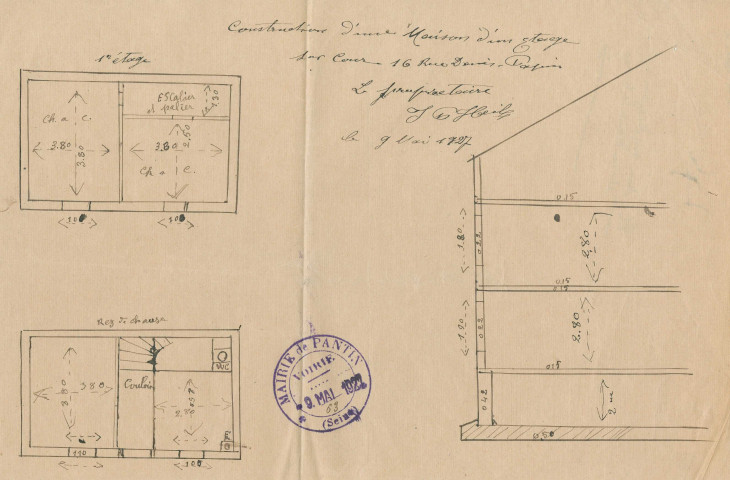 Construction d'une Maison d'un étage
sur Cour 16 Rue Denis-Papin
Le propriétaire
le 9 Mai 1927
1er étage
Ch a c.
3.80
3.80
Escalier
et palier
1.30
3.80
2.50
Ch a c.
100
100
Rez de chaussé
3.80
3.80
Couloir
WC
E
110
100
MAIRIE de PANTIN
VOIRIE
9. MAI 1927
63
(Seine)
0 15
1.80
0.22
2.80
0 15
0 15
0.22
2.80
0 15
0 42
2 m
0,50